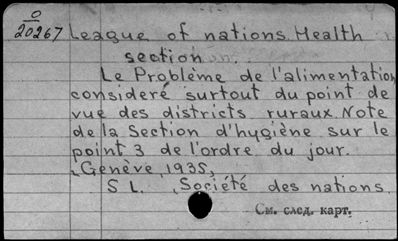 O
20267 League of nations. Health
section
Le Problème de l'alimentation
consideré surtout du point de
vue des districts ruraux. Note
de la Section d'hygiène sur le
point 3 de l'ordre du jour.
Genève, 1935,
S L. Société des nations.
См. след. карт.